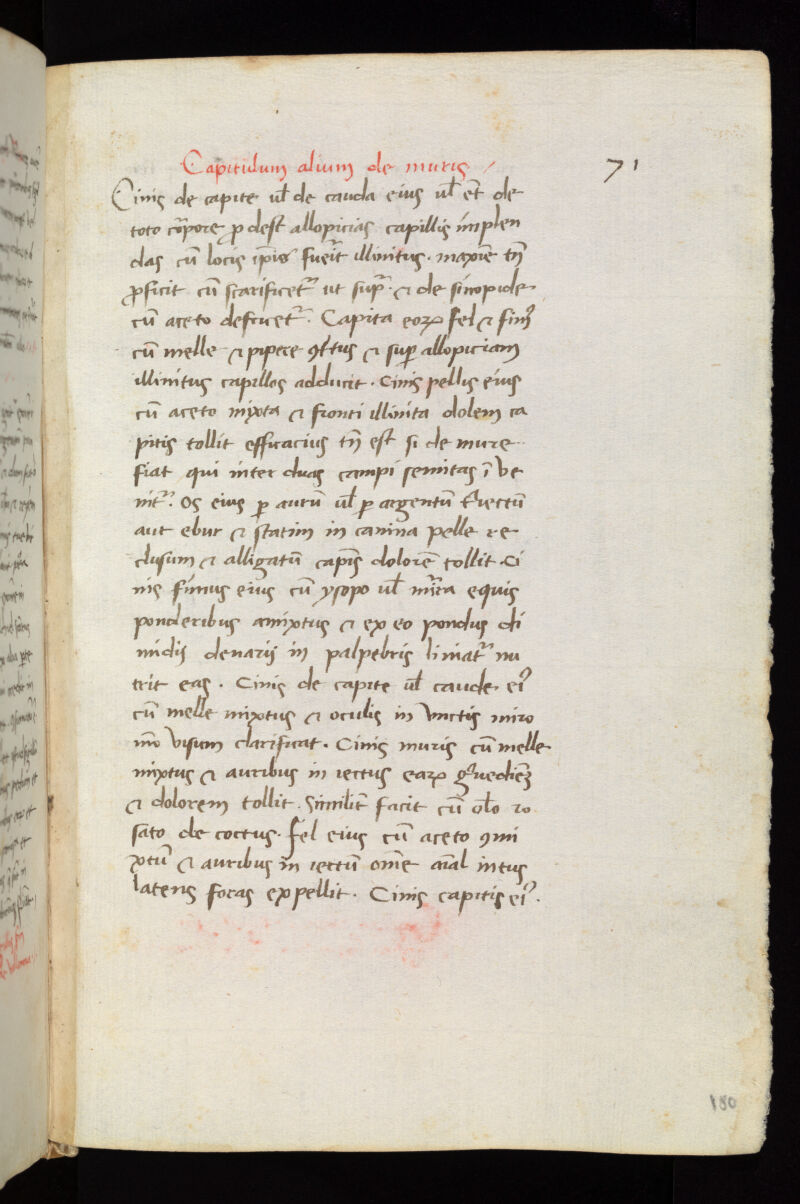 Capitulum alium de muris / 71
Cinis de capite ul̄ de cauda eius ul̄ et̄ de
toto cor̄pore ꝓ dest allopicias capillis implen
das cū locis ip̄is fuerīt illinitus. maxīe tn̄
ꝓficit cū scarificet᷑ ut sup᷑. ⁊ de sinopide
cū aceto defricet᷑. Capita eoꝝ fel ⁊ fim᷒
cū melle ⁊ pipere ꝯ ⁊ sup̄ allopiciam
illinitus capillos adducit. Cinis pellis eius
cū aceto mixta ⁊ fronti illinita dolem ca
pitis tollit efficacius tn̄ est si de mure
fiat qui inter duas campi semitas ī ve
nit᷑. Os eius ꝑ aurū ul̄ ꝑ argentū erectū
aut ebur ⁊ statim in canina pelle re
clusum ⁊ alligatū capit̄s dolorē tollit. Ci
nis fimus eius cū ysopo ul̄ equis
ponderibus amixtus ⁊ ex eo pondus di
midij denarij in palpebris liniat᷑ nu
trit eas. Cinis de capite ul̄ caude ei᷒
cū melle mixotus ⁊ oculis in unctis miro
mō visum clarificat. Cinis muris cū melle
mixtus ⁊ auribus in iectus earꝝ
⁊ dolorem tollit. Similit̄ facit cū ol̄o ro
sato de coctus. fel eius cū aceto ꝯmi
xtū ⁊ auribus in iectū om̄e aīal intus
latens foras expellit. Cinis capitis ei᷒.
180